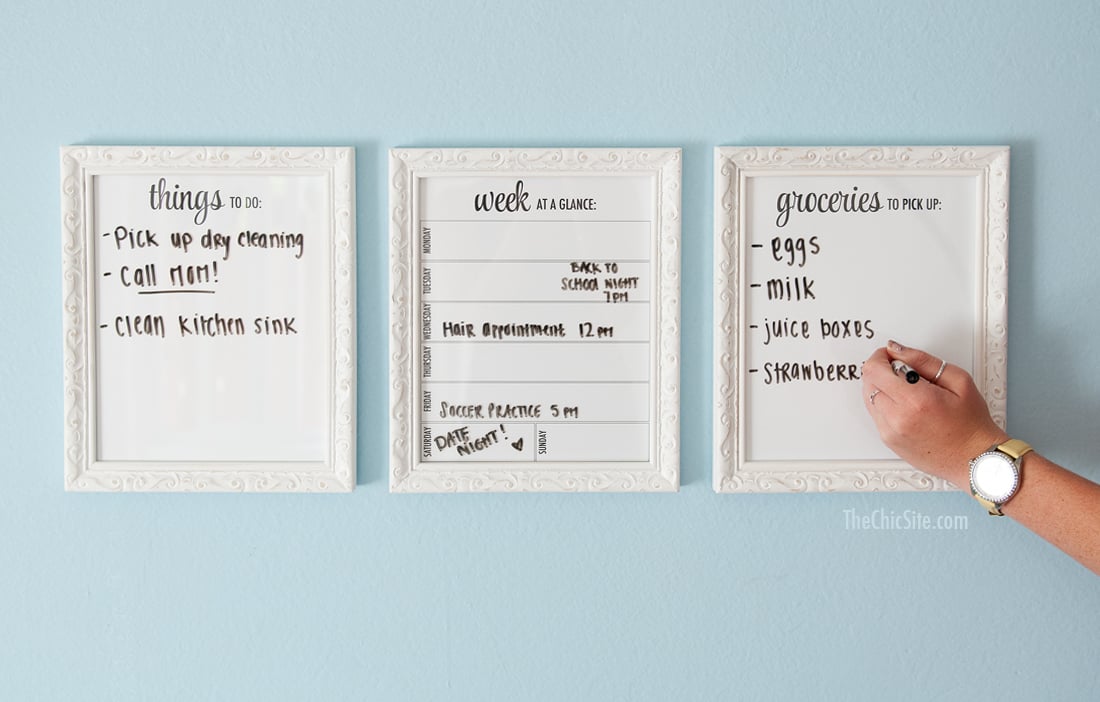 things TO DO:
-Pick up dry cleaning
- Call MOM!
- Clean kitchen sink
week AT A GLANCE:
MONDAY
TUESDAY
BACK TO
SCHOOL NIGHT
7PM
WEDNESDAY
Hair Appointment 12 PM
THURSDAY
FRIDAY
SOCCER PRACTICE 5 PM
SATURDAY
DATE
NIGHT! ♥
SUNDAY
groceries TO PICK UP:
- eggs
- milk
- juice boxes
- strawberri
TheChicSite.com